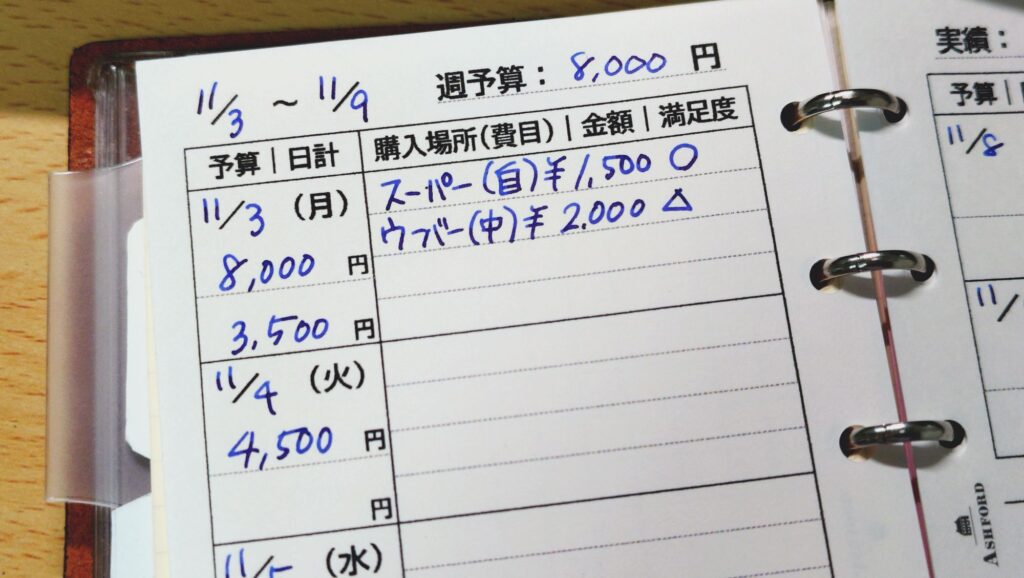 11/3 ～ 11/9
週予算： 8,000 円
予算｜日計
購入場所(費目)｜金額｜満足度
11/3 (月)
8,000 円
3,500 円
スーパー(自)¥1,500 ○
ウーバー(中)¥2,000 △
11/4 (火)
4,500 円
円
11/5 (水)
実績：
予算｜
11/8
11/
ASHFORD